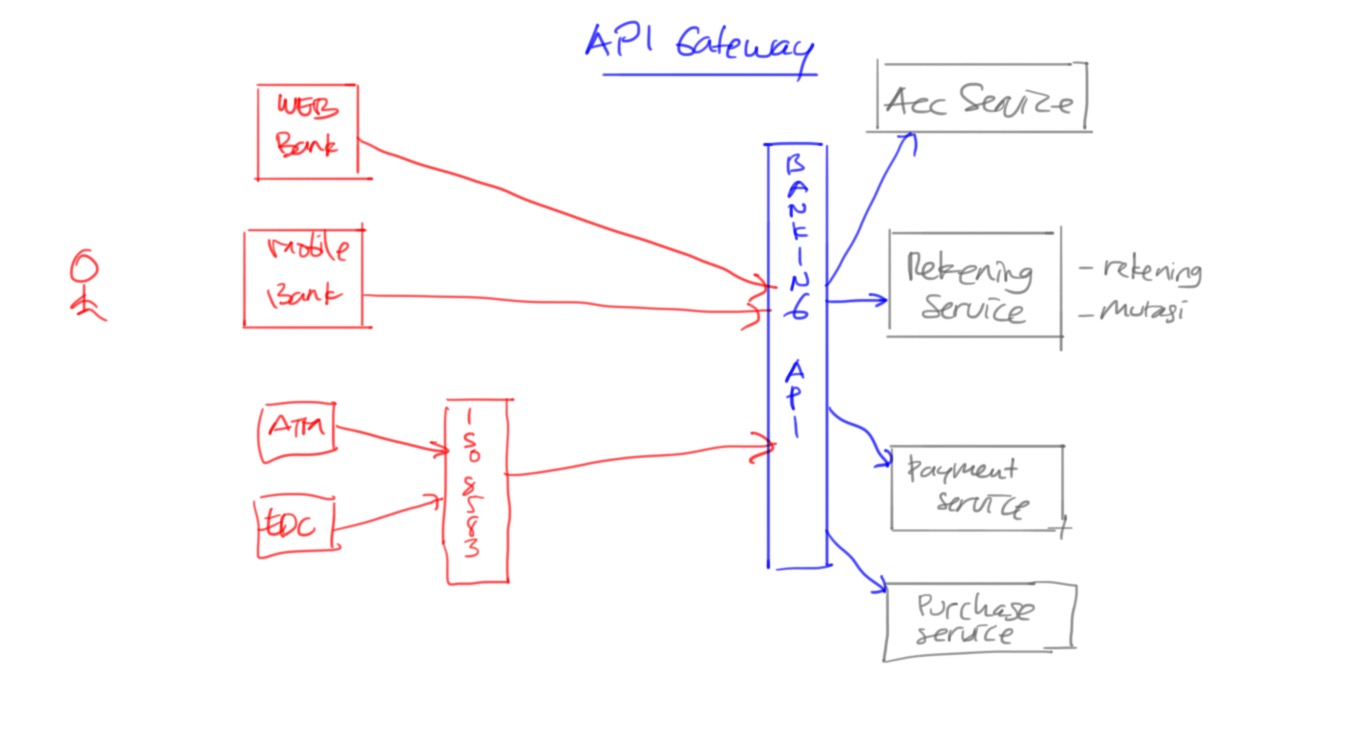 API Gateway
WEB
Bank
Mobile
Bank
ATM
EDC
ISO 8583
BANKING API
Acc Service
Rekening
Service
- rekening
- Mutasi
Payment
service
Purchase
service